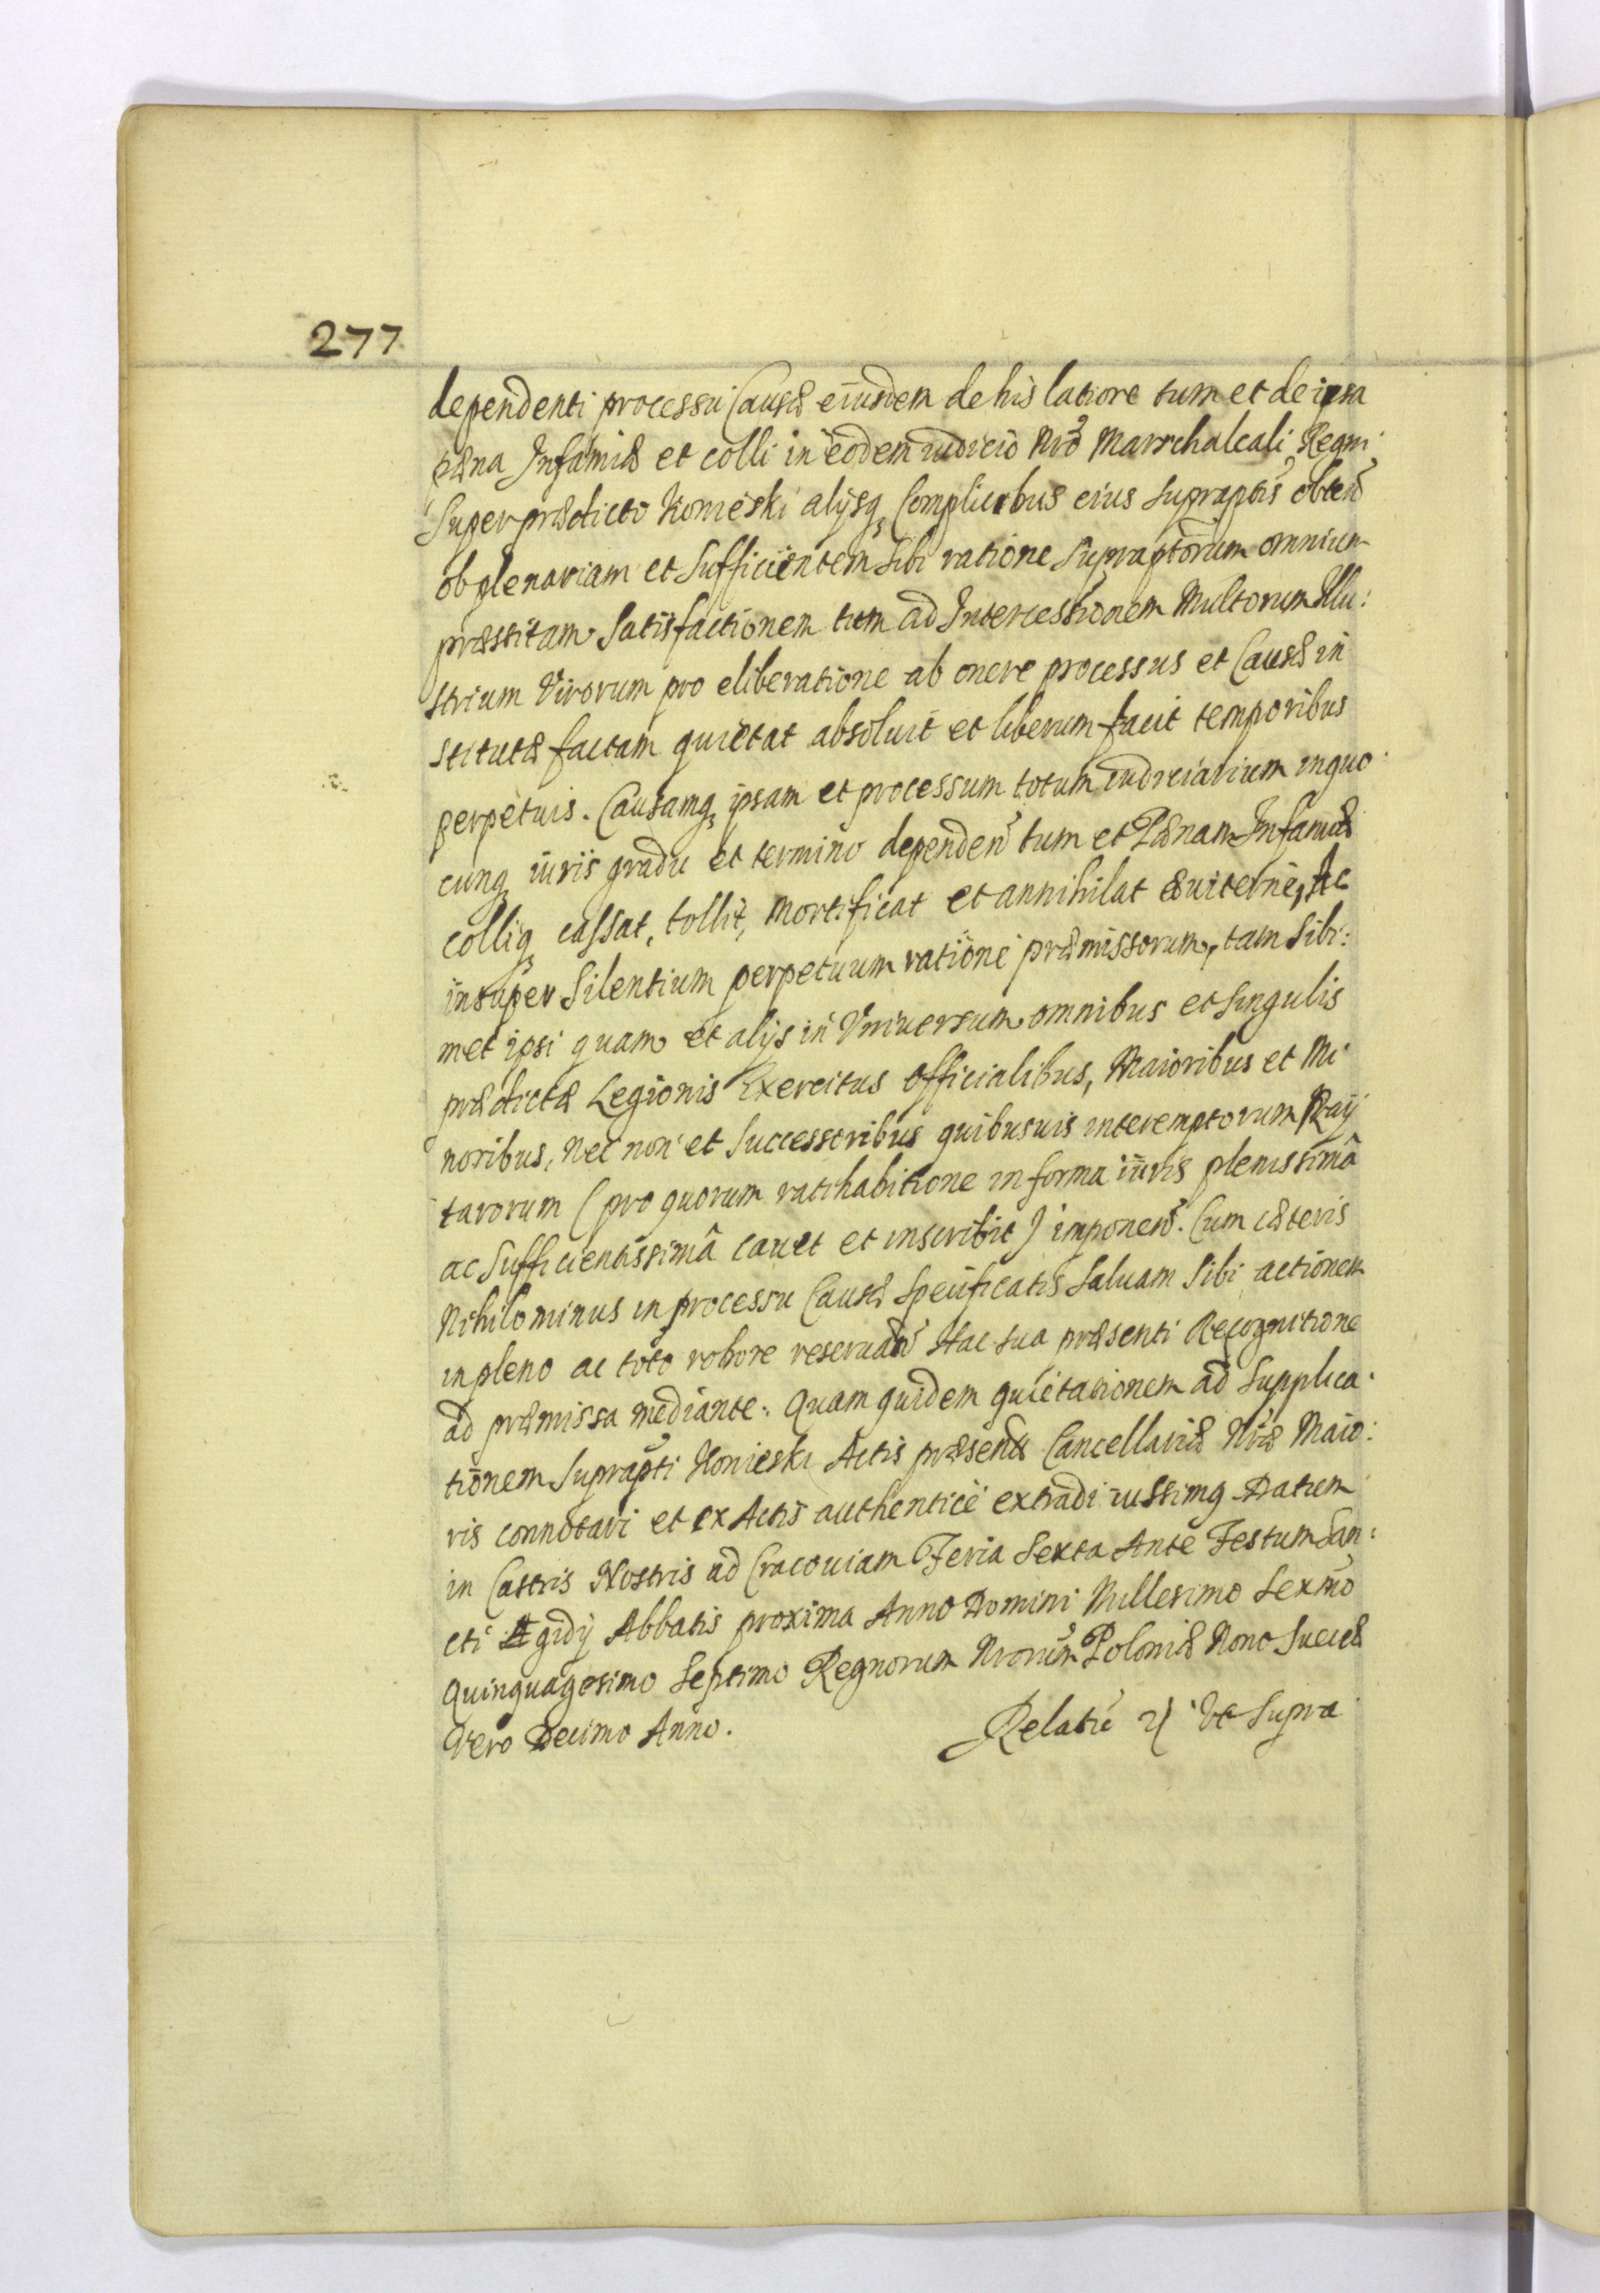 277
dependenti processu Causæ eiusdem de his latiore tum et de ipsa
pæna Infamiæ et colli in eodem iudicio Nrõ Marschalcali Regni
super prædicto Konieski alijsq Complicibus eius supraptis obten̄
ob plenariam et Sufficientem sibi ratione supraptorum omnium
præstitam Satisfactionem tum ad Intercessionem Multorum Illu:
strium Virorum pro eliberatione ab onere processus et Causæ in
stitutæ factam quietat absoluit et liberum facit temporibus
perpetuis. Causamq ipsam et processum totum iudiciarium in quo
cunq iuris gradu et termino dependen̄ tum et Pænam Infamiæ
colliq cassat, tollit, mortificat et annihilat æuiterne, Ac
insuper Silentium perpetuum ratione præmissorum, tam Sibi:
met ipsi quam et alijs in Vniuersum omnibus et singulis
prædictæ Legionis Exercitus officialibus, Maioribus et Mi
noribus, nec non et Successoribus quibusuis interemptorum Ray
tarorum (pro quorum ratihabitione in forma iuris plenissimâ
ac Sufficientissimâ cauet et inscribit) imponen̄. Cum cæteris
Nihilominus in processu Causæ Specificatis Saluam Sibi actionem
in pleno ac toto robore reseruan̄ Hac sua præsenti Recognitione
ad præmissa mediante. Quam quidem quietationem ad Supplica
tionem Suprapti Konieski Actis præsen̄ Cancellariæ Nræ Maio:
ris connotari et ex Actis authentice extradi iussimq Datum
in Castris Nostris ad Cracouiam Feria Sexta Ante Festum San:
cti Ægidij Abbatis proxima Anno Domini Millesimo Sexmõ
Quinquagesimo Septimo Regnorum Nrorum Poloniæ Nono Sueciæ
Vero Decimo Anno.
Relatio Ut Supra